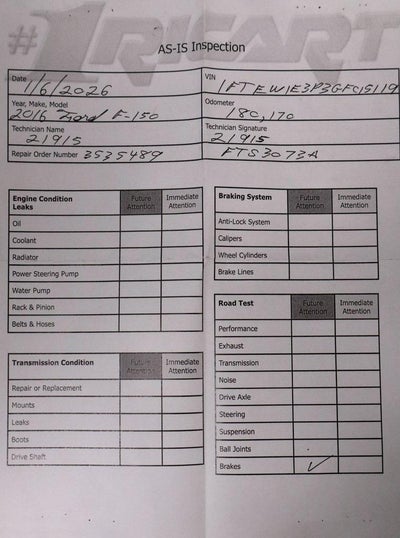 #1 RICART
AS-IS Inspection
Date 1/6/2026
VIN 1FTEW1E3P3GFC15119
Year, Make, Model 2016 Ford F-150
Odometer 180,170
Technician Name 21915
Technician Signature 21915
Repair Order Number 3535489
FTS3073A
Engine Condition Leaks Future Attention Immediate Attention
Oil
Coolant
Radiator
Power Steering Pump
Water Pump
Rack & Pinion
Belts & Hoses
Transmission Condition Future Attention Immediate Attention
Repair or Replacement
Mounts
Leaks
Boots
Drive Shaft
Braking System Future Attention Immediate Attention
Anti-Lock System
Calipers
Wheel Cylinders
Brake Lines
Road Test Future Attention Immediate Attention
Performance
Exhaust
Transmission
Noise
Drive Axle
Steering
Suspension
Ball Joints
Brakes ✓